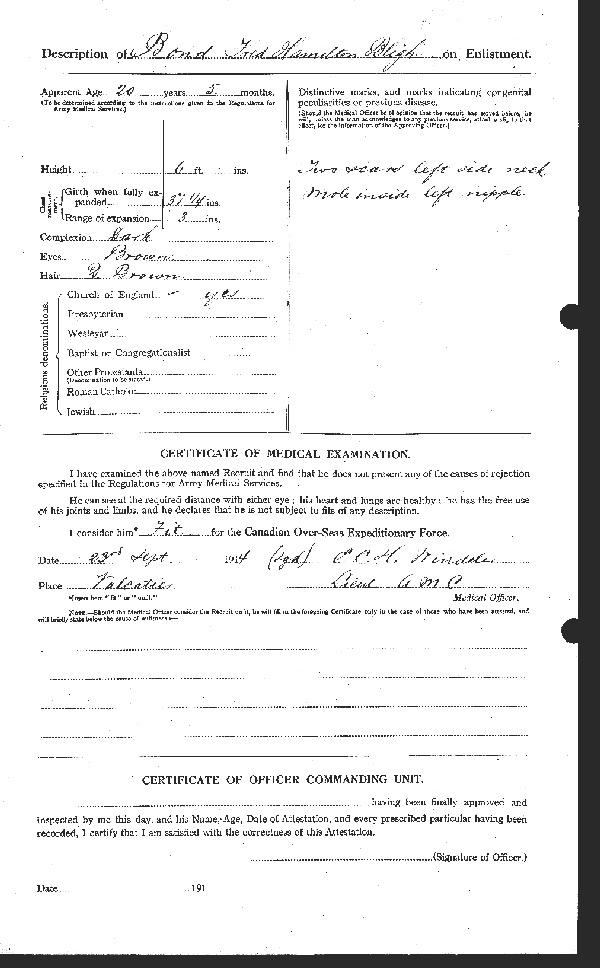 Description of Bond Fred Hamilton Bligh on Enlistment.
Apparent Age 20 years 5 months.
(To be determined according to the instructions given in the Regulations for Army Medical Services.)
Distinctive marks, and marks indicating congenital
peculiarities or previous disease.
(Should the Medical Officer be of opinion that the recruit has served before, he
will, unless the man acknowledges to any previous service, attach a slip to that
effect, for the information of the Approving Officer.)
Height 6 ft. ins.
Two scars left side neck
Mole inside left nipple
Girth when fully ex-
panded 37 1/4 ins.
Range of expansion 3 ins.
Complexion Dark
Eyes Brown
Hair D Brown
Religious denominations.
Church of England yes
Presbyterian
Wesleyan
Baptist or Congregationalist
Other Protestants
(Denomination to be stated.)
Roman Catholic
Jewish
CERTIFICATE OF MEDICAL EXAMINATION.
I have examined the above named Recruit and find that he does not present any of the causes of rejection
specified in the Regulations for Army Medical Services.
He can see at the required distance with either eye; his heart and lungs are healthy; he has the free use
of his joints and limbs, and he declares that he is not subject to fits of any description.
I consider him* Fit for the Canadian Over-Seas Expeditionary Force.
Date 23rd Sept 1914 (sgd)
Place Valcartier Lieut A M C
*Insert here "fit" or "unfit." Medical Officer.
NOTE.—Should the Medical Officer consider the Recruit unfit, he will fill in the foregoing Certificate only in the case of those who have been attested, and
will briefly state below the cause of unfitness:—
CERTIFICATE OF OFFICER COMMANDING UNIT.
having been finally approved and
inspected by me this day, and his Name, Age, Date of Attestation, and every prescribed particular having been
recorded, I certify that I am satisfied with the correctness of this Attestation.
(Signature of Officer.)
Date 191